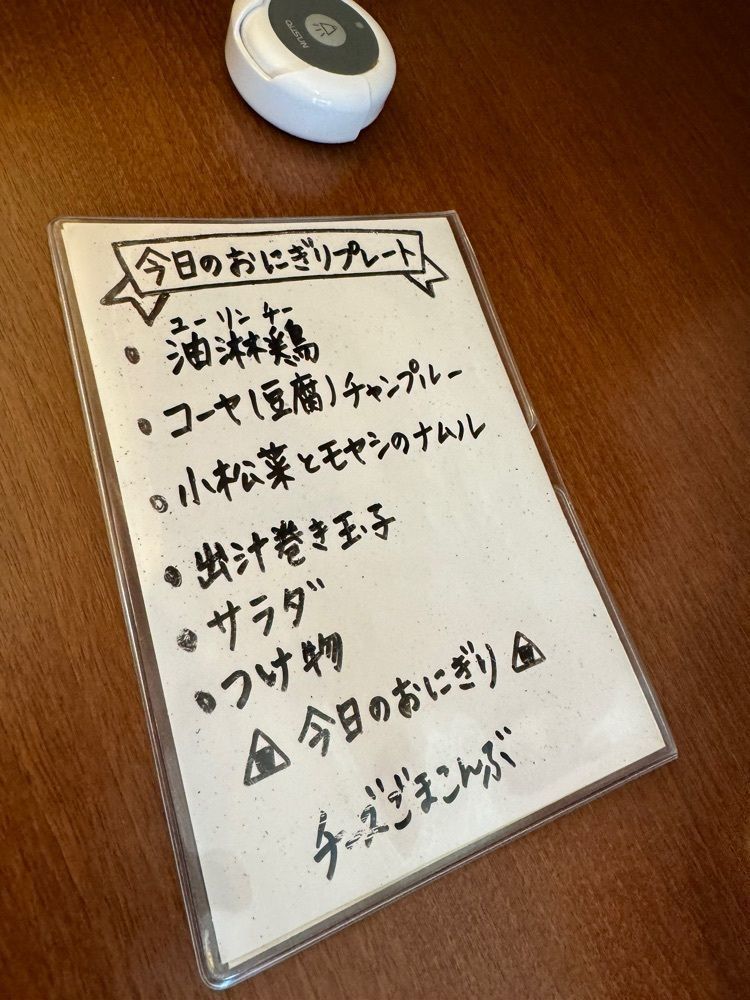 今日のおにぎりプレート
ユーリンチー
油淋鶏
コーヤ(豆腐)チャンプルー
小松菜とモヤシのナムル
出汁巻き玉子
サラダ
つけ物
今日のおにぎり
チーズごまこんぶ